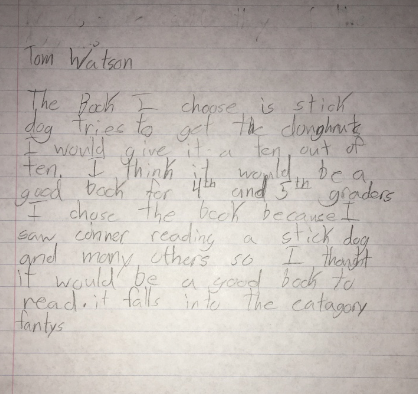 Tom Watson
The Book I choose is stick
dog tries to get the doughnuts
I would give it a ten out of
ten. I think it would be a
good book for 4th and 5th graders
I chose the book because I
saw conner reading a stick dog
and many others so I thought
it would be a good book to
read. it falls into the catagory
fantys